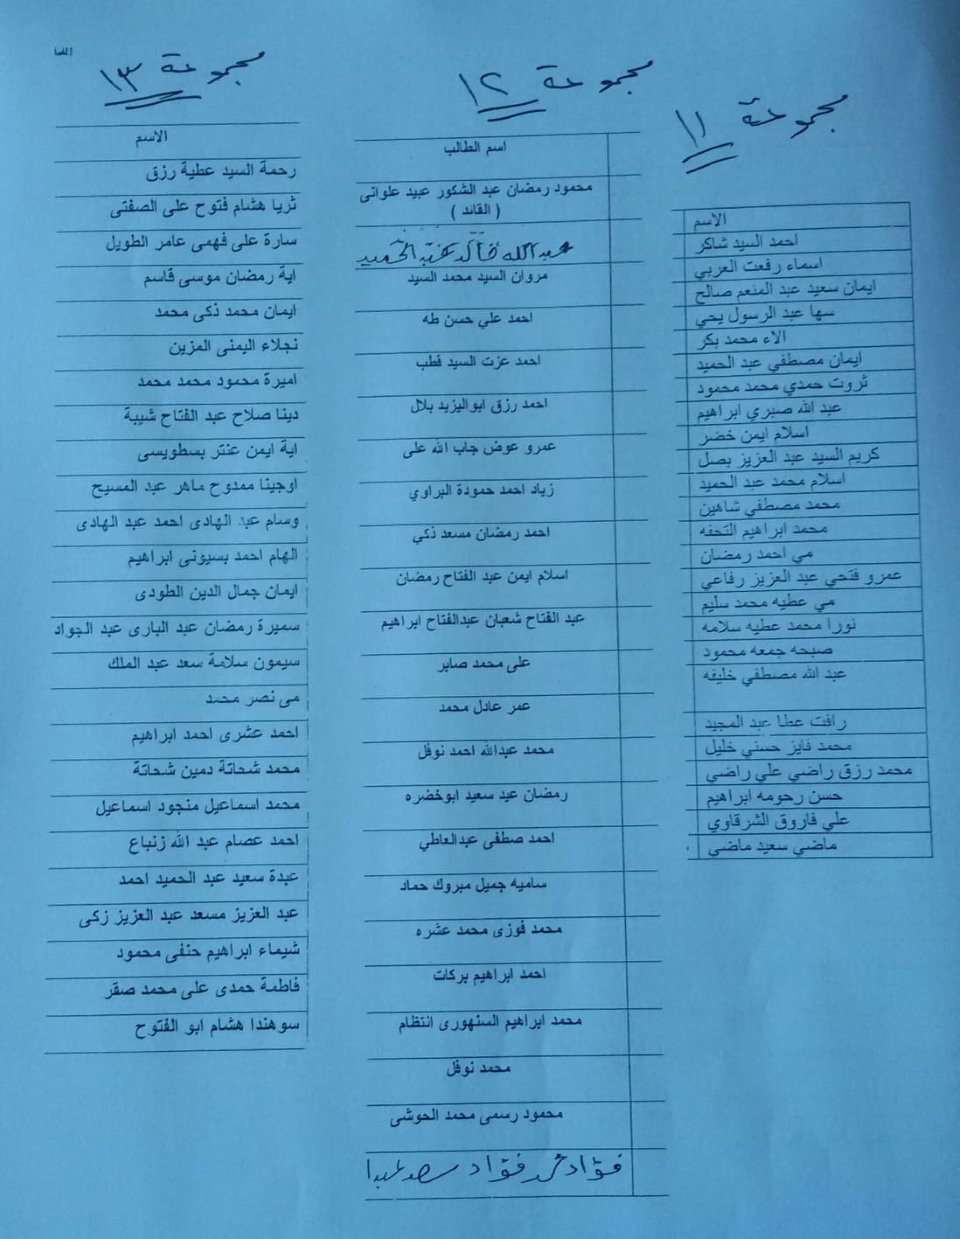 مجموعة ١١
الاسم
احمد السيد شاكر
اسماء رفعت العربي
ايمان سعيد عبد المنعم صالح
سها عبد الرسول يحي
الاء محمد بكر
ايمان مصطفي عبد الحميد
ثروت حمدي محمد محمود
عبد الله صبري ابراهيم
اسلام ايمن خضر
كريم السيد عبد العزيز بصل
اسلام محمد عبد الحميد
محمد مصطفي شاهين
محمد ابراهيم التحفه
مي احمد رمضان
عمرو فتحي عبد العزيز رفاعي
مي عطيه محمد سليم
نورا محمد عطيه سلامه
صبحه جمعه محمود
عبد الله مصطفي خليفه
رافت عطا عبد المجيد
محمد فايز حسني خليل
محمد رزق راضي علي راضي
حسن رحومه ابراهيم
علي فاروق الشرقاوي
ماضي سعيد ماضي
مجموعة ١٢
اسم الطالب
محمود رمضان عبد الشكور عبيد علوانى
( القائد )
عبدالله خالد عبد الحميد
مروان السيد محمد السيد
احمد علي حسن طه
احمد عزت السيد قطب
احمد رزق ابواليزيد بلال
عمرو عوض جاب الله على
زياد احمد حمودة البراوي
احمد رمضان مسعد ذكي
اسلام ايمن عبد الفتاح رمضان
عبد الفتاح شعبان عبدالفتاح ابراهيم
على محمد صابر
عمر عادل محمد
محمد عبدالله احمد نوفل
رمضان عيد سعيد ابوخضره
احمد صطفى عبدالعاطي
ساميه جميل مبروك حماد
محمد فوزى محمد عشره
احمد ابراهيم بركات
محمد ابراهيم السنهورى انتظام
محمد نوفل
محمود رسمى محمد الحوشى
فؤاد محمد فؤاد سعد
مجموعة ١٣
الاسم
رحمة السيد عطية رزق
ثريا هشام فتوح على الصفتى
سارة على فهمى عامر الطويل
اية رمضان موسى قاسم
ايمان محمد ذكى محمد
نجلاء اليمنى المزين
اميرة محمود محمد محمد
دينا صلاح عبد الفتاح شيبة
اية ايمن عنتر بسطويسى
اوجينا ممدوح ماهر عبد المسيح
وسام عبد الهادى احمد عبد الهادى
الهام احمد بسيونى ابراهيم
ايمان جمال الدين الطودى
سميرة رمضان عبد البارى عبد الجواد
سيمون سلامة سعد عبد الملك
مى نصر محمد
احمد عشرى احمد ابراهيم
محمد شحاتة دمين شحاتة
محمد اسماعيل منجود اسماعيل
احمد عصام عبد الله زنباع
عبدة سعيد عبد الحميد احمد
عبد العزيز مسعد عبد العزيز زكى
شيماء ابراهيم حنفى محمود
فاطمة حمدى على محمد صقر
سوهندا هشام ابو الفتوح